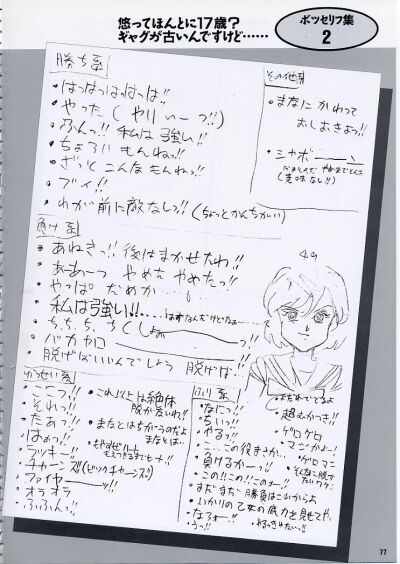 悠ってほんとに17歳?
ギャグが古いんですけど……
ボツセリフ集
2
勝ち系
・はっはっはっはっは!!
・やった(やりぃーっ!!)
・ふんっ!! 私は強い!!
・ちょろいもんねっ!!
・ざっとこんなもんねっ!!
・ブイ!!
・わが前に敵なしっ!!(ちょっとかんちがい)
その他系
・まなにかわって
おしおきよっ!!
・シャボーーン
(意味なし!!)
負け系
・あねき!! 後はまかせたわ!!
・あーあーっ やめた やめたっ!!
・やっぱ だめか
・私は強い!!…… はずなんだけどなぁー
・ち、ち、ち、ちくしょぉーーっ!!
・バカヤローーーっ!!
・脱げばいいんでしょう 脱げば!!
・ここっ!!
・それっ!!
・たあっ!!
・はぁっ!!
・ラッキー!!
・チャーンズ(ビックチャーンズ)
・ファイヤーーーッ!!
・オラオラ
・これ以上は絶体
脱がないわ!!
・まなとはちがうのだよ
まなとは…
・なにっ!!
・ちぃっ!!
・やるっ!!
・…この役まさか…
・負けるかーっ!!
・この!!この!!このォー!!
・まだまだ 勝負はこれからよ
・いかりの乙女の底力を見せてや…
・うっ!!
・超むかつき!!
・ゲロゲロ
・マジかよー!
・ゲロマン
77